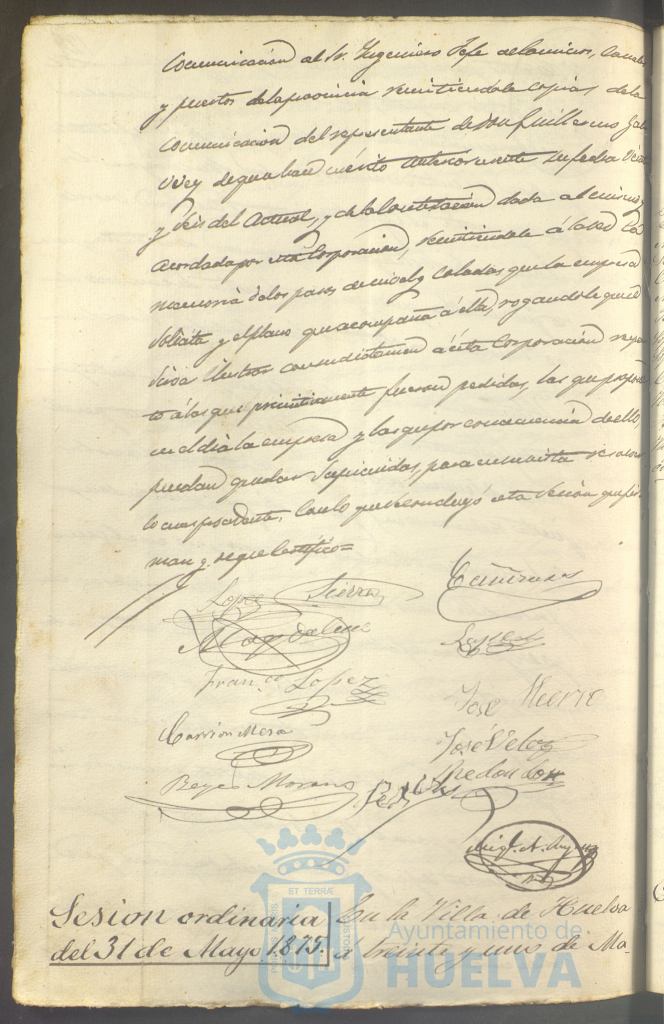 Comunicación al Sr. Ingeniero Jefe de Caminos, Canales
y puertos de la provincia remitiendole copias, de la
comunicacion del representante de Don Guillermo
de que se hace mérito anteriormente su fecha Veinte
y seis del actual, y de la contestacion dada al mismo y
acordada por esta Corporacion, remitiendole á la vez la
memoria de los pasos de nivel y Coladas que la empresa
solicita y el plano que acompaña á ella, rogandole que se
sirva ilustrar con su dictamen á esta Corporacion respec
to á las que primitivamente fueron pedidas, las que propone
en el dia la empresa y las que por consecuencia de ello,
puedan quedar suprimidas, para en su vista resolver
lo mas procedente. Con lo que se concluyó esta sesion que fir
man y de que Certifico=
Lopez Sierra
Magdalena
Franco. Lopez
José
Carrion Mesa
José Velez
Redondo
Reyes Moreno
Sesion ordinaria
del 31 de Mayo 1.875.
En la Villa de Huelva
á treinta y uno de Ma-
ET TERRÆ
Ayuntamiento de
HUELVA